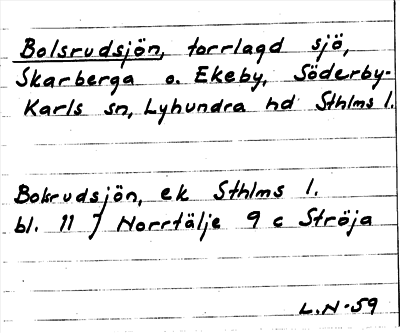 Bolsrudsjön, torrlagd sjö,
Skarberga o. Ekeby, Söderby-
Karls sn, Lyhundra hd Sthlms l.
Bolsrudsjön, ek Sthlms l.
bl. 11 7 Norrtälje 9 c Ströja
L.N-59